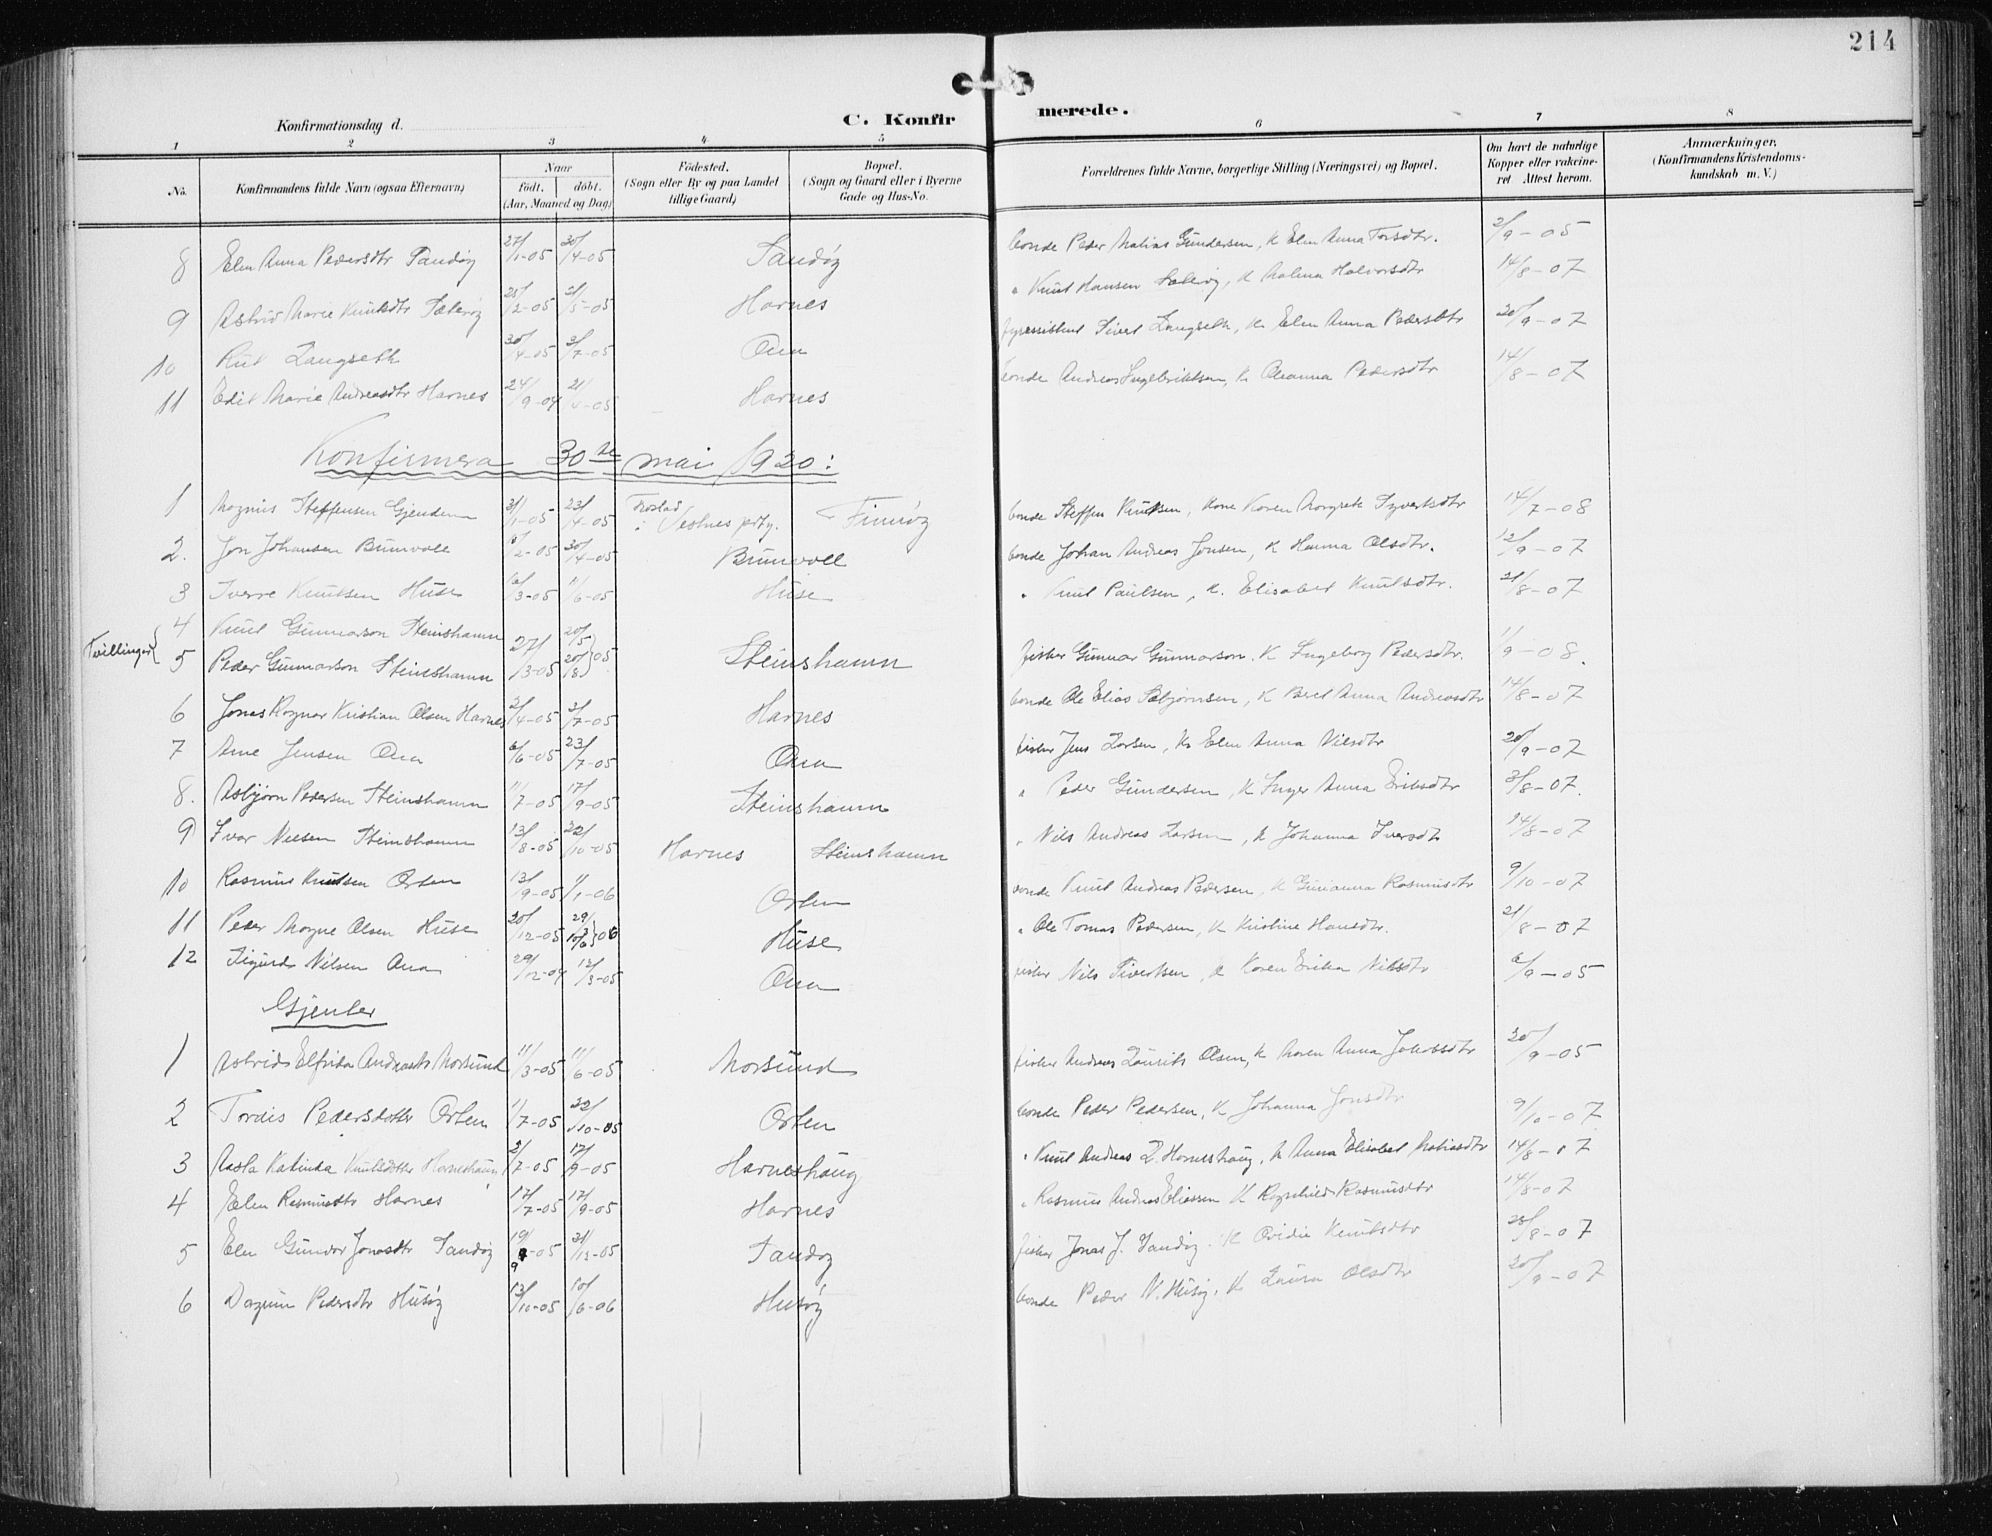 214
Konfirmationsdag d.
C. Konfirmerede.
1 2 3 4 5 6 7 8
No. Konfirmandens fulde Navn (ogsaa Efternavn) Naar født. døbt. (Aar, Maaned og Dag) Fødested. (Sogn eller By og paa Landet tillige Gaard) Bopæl. (Sogn og Gaard eller i Byerne Gade og Hus-No. Forældrenes fulde Navne, borgerlige Stilling (Næringsvei) og Bopæl. Om havt de naturlige Kopper eller vakcineret. Attest herom. Anmærkninger, (Konfirmandens Kristendomskundskab m. V.)
8 Elen Anna Pedersdtr Sandøy 27/1-05 30/4-05 Sandøy bonde Peder Matias Gundersen, K Elen Anna Torsdtr. 2/9-05
9 Astrid Marie Knutsdtr Sæterøy 25/2-05 21/5-05 Harnes " Knut Hansen Sæterøy, K Malena Halvorsdtr 14/8-07
10 Rut Langseth 30/4-05 2/7-05 Ona fyrassistent Sivert Langseth, K. Elen Anna Pedersdtr 20/9-07
11 Edit Marie Andreasdtr Harnes 24/9-04 21/4-05 Harnes bonde Andreas Ingebriktsen, K Oleanna Pedersdtr 14/8-07
Konfirmera 30te mai 1920:
1 Magnus Steffensen Gjendem 31/1-05 23/4-05 i Vestnes prtg. Finnøy bonde Steffen Knutsen, Kone Karen Margrete Syvertsdtr 14/7-08
2. Jon Johansen Bunvoll 5/2-05 30/4-05 Bunvoll bonde Johan Andreas Jonsen, K Hanna Olsdtr. 12/9-07
3 Sverre Knutsen Huse 6/3-05 11/6-05 Huse " Knut Paulsen, K. Elisabet Knutsdtr. 21/8-07
Tvillinger { 4 Knut Gunnarson Steinshamn 27/3-05 20/5
5 Peder Gunnarson Steinshamn 20/8 } 05 Steinshamn fisker Gunnar Gunnarson. K Ingeborg Pedersdtr. 1/9-08.
6 Jonas Ragnar Kristian Olsen Harnes 2/4-05 2/7-05 Harnes bonde Ole Elias Sæbjørnsen, K Beret Anna Andreasdtr 14/8-07
7 Arne Jensen Ona 6/6-05 23/7-05 Ona fisker Jens Larsen, K. Elen Anna Nilsdtr 20/9-07
8. Asbjørn Pedersen Steinshamn 11/7-05 17/9-05 Steinshamn " Peder Gundersen, K Inger Anna Eriksdtr 3/8-07.
9 Ivar Nilsen Steinshamn 13/8-05 22/10-05 Harnes Steinshamn " Nils Andreas Larsen, K Johanna Iversdt 14/8-07
10 Rasmus Knutsen Orten 13/9-05 1/1-06 Orten bonde Knut Andreas Pedersen, K Gurianna Rasmusdtr 9/10-07
11 Peder Magne Olsen Huse 20/12-05 29/3 10/6 } 06 Huse " Ole Tomas Pedersen, K Kristine Hansdtr. 21/8-07
12 Sigurd Nilsen Ona 29/12-04 12/3-05 Ona fisker Nils Sivertsen, K Karen Erika Nilsdtr 6/9-05
Gjenter
1 Astrid Elfrida Andreasdtr Morsund 11/3-05 11/6-05 Morsund fisker Andreas Laurits Olsen, K Maren Anna Jakobsdtr 20/9-05
2 Tordis Pedersdotter Orten 1/7-05 22/10-05 Orten bonde Peder Pedersen, K Johanna Jonsdtr 9/10-07
3 Aasta Katinka Knutsdotter Harneshaug 2/7-05 17/9-05 Harneshaug " Knut Andreas L. Harneshaug, K Anna Elisabet Matiasdtr 14/8-07
4 Elen Rasmusdtr Harnes 17/7-05 17/9-05 Harnes " Rasmus Andreas Eliassen K Ragnhild Rasmusdtr 14/8-07
5 Elen Gunda Jonasdtr Sandøy 19/9-05 31/12-05 Sandøy fisker Jonas J. Sandøy. K Ovidie Knutsdtr 28/8-07
6 Dagrun Pedersdtr Husøy 13/10-05 10/6-06 Husøy bonde Peder N. Husøy, K Laura Olsdtr 20/9-07